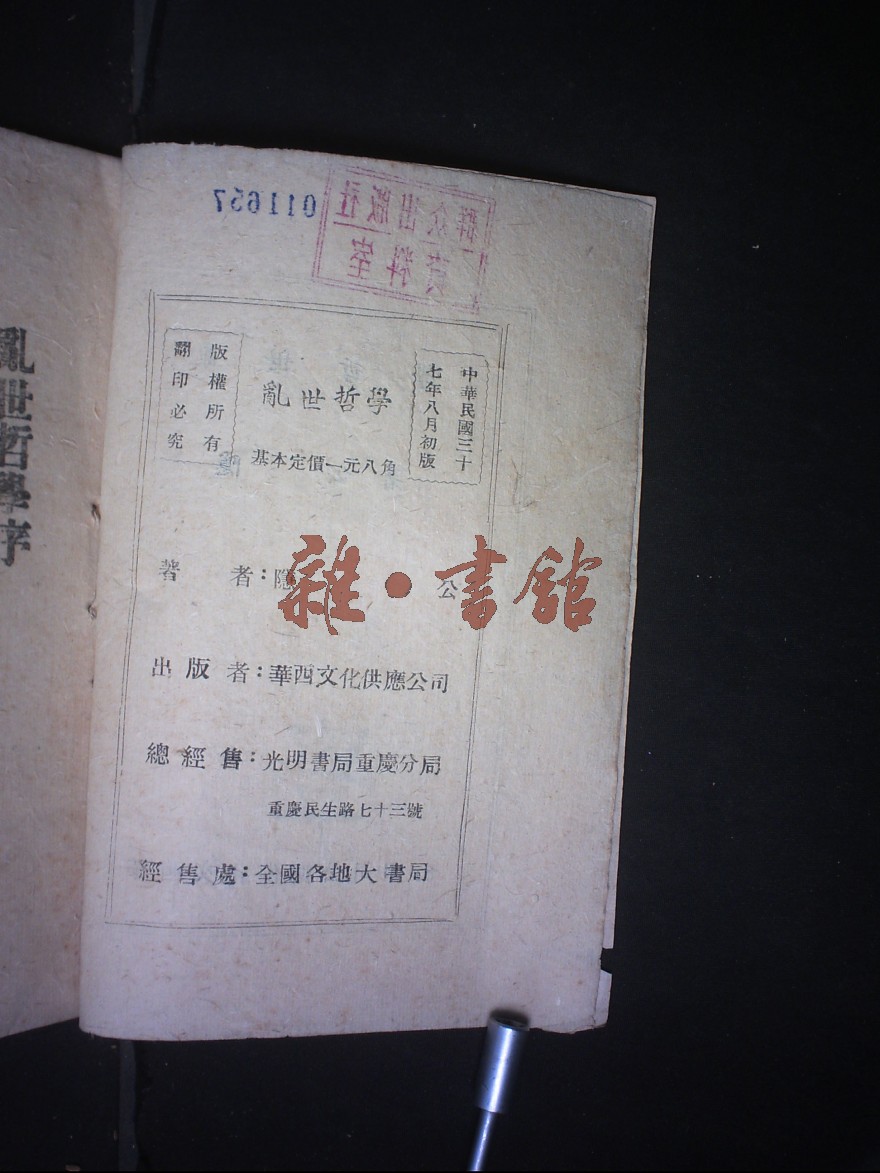 011657
群众出版社
資料室
中華民國三十
七年八月初版
亂世哲學
基本定價一元八角
版權所有
翻印必究
著者:隱 公
雜·書館
出版者:華西文化供應公司
總經售:光明書局重慶分局
重慶民生路七十三號
經售處:全國各地大書局
亂世哲學序